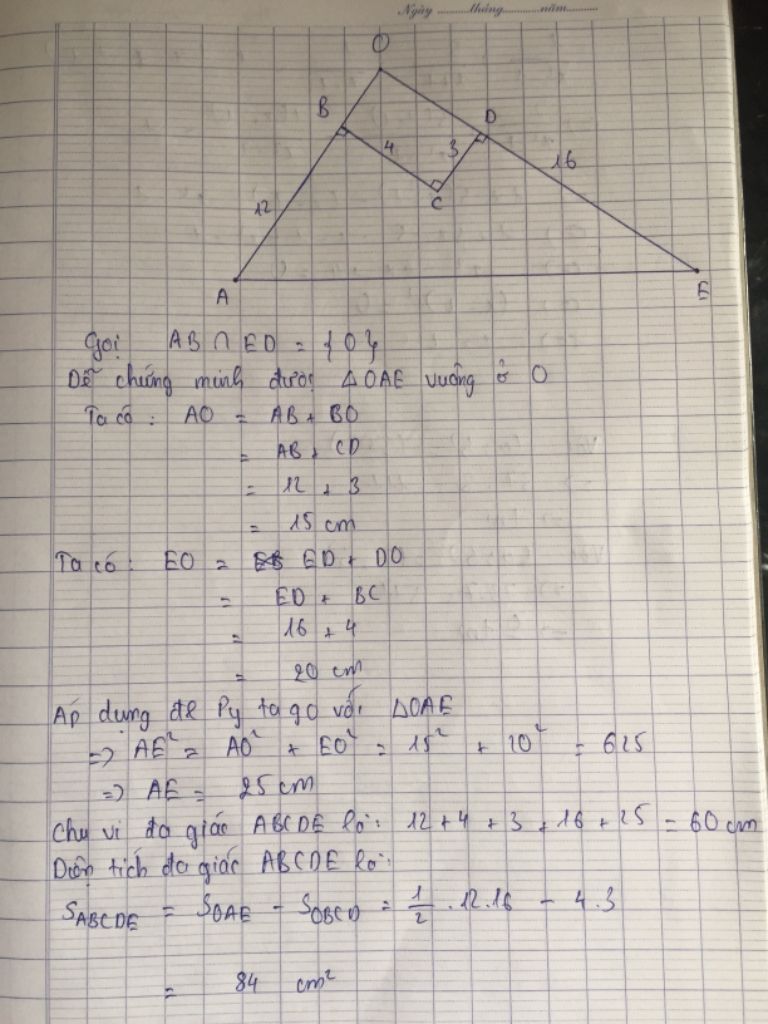 Ngày ..........tháng..........năm..........
O
B
D
4
3
16
C
12
A
E
Gọi AB ∩ ED = {O}
Dễ chứng minh được ΔOAE vuông ở O
Ta có : AO = AB + BO
= AB + CD
= 12 + 3
= 15 cm
Ta có : EO = ED + DO
= ED + BC
= 16 + 4
= 20 cm
Áp dụng đl Py ta go với ΔOAE
=> AE² = AO² + EO² = 15² + 20² = 625
=> AE = 25 cm
Chu vi đa giác ABCDE là: 12 + 4 + 3 + 16 + 25 = 60 cm
Diện tích đa giác ABCDE là:
S_ABCDE = S_OAE - S_OBCD = 1/2 . 12.16 - 4.3
= 84 cm²